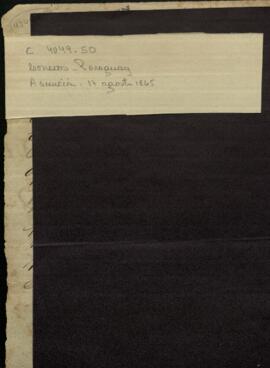 C 4049.50
Correos - Paraguay
Asunción. 17 agosto 1865